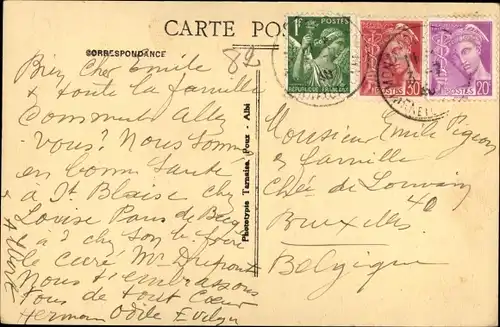 CARTE POS
CORRESPONDANCE
82
1F POSTES
REPUBLIQUE FRANÇAISE
POSTES 30
POSTES 20
Bien Cher Emile
& toute la famille
Comment allez
vous? Nous sommes
en bonne santé
à St Blaise chez
Lovise Pons de
à 3 chez son b. frère
le curé Mr Dupont
Nous embrassons
Tous de tout cœur
Hermann Odile Evelyn
Phototypie Tarnaise, Poux - Albi
Monsieur Emile Pigeon
et famille
Chée de Louvain
40
Bruxelles
Belgique